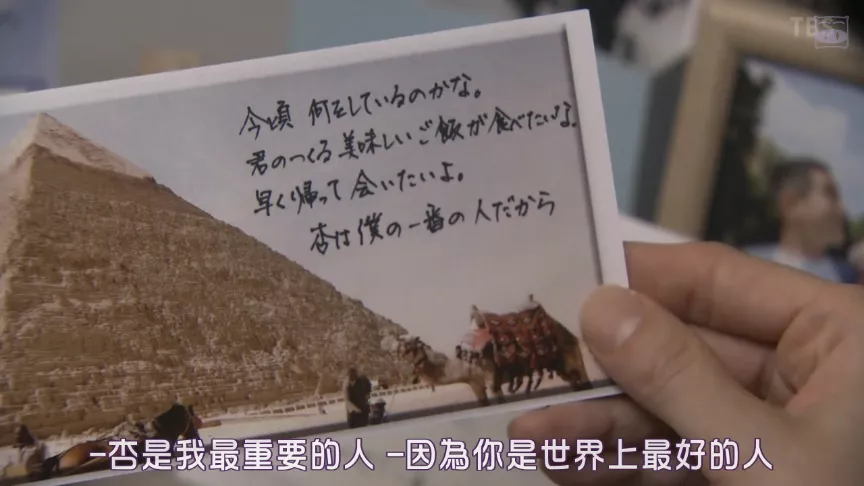 今頃 何をしているのかな。
君のつくる美味しいご飯が食べたいな。
早く帰って会いたいよ。
杏は僕の一番の人だから
TBS
-杏是我最重要的人 -因為你是世界上最好的人